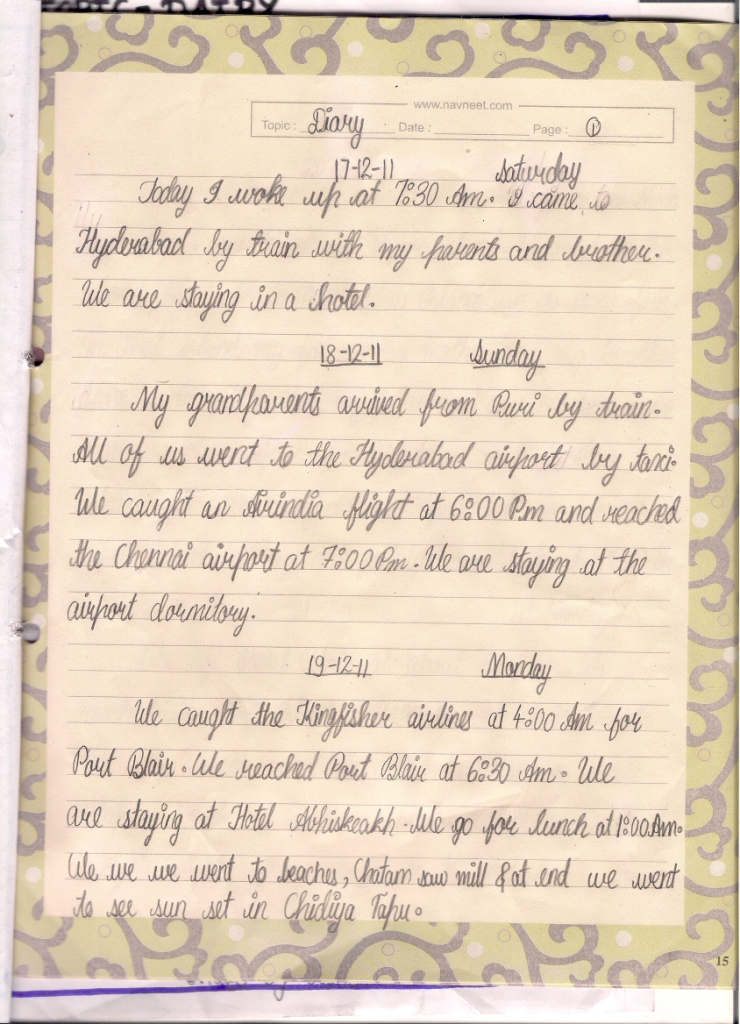 TOPIC - DAIRY
www.navneet.com
Topic : Diary Date : Page : 1
17-12-11 Saturday
Today I woke up at 7:30 Am. I came to
Hyderabad by train with my parents and brother.
We are staying in a hotel.
18-12-11 Sunday
My grandparents arrived from Puri by train.
All of us went to the Hyderabad airport by taxi.
We caught an Airindia flight at 6:00 P.m and reached
the Chennai airport at 7:00 Pm. We are staying at the
airport dormitory.
19-12-11 Monday
We caught the Kingfisher airlines at 4:00 Am for
Port Blair. We reached Port Blair at 6:30 Am. We
are staying at Hotel Abhiskeakh. We go for lunch at 1:00 Am.
We we we went to beaches, Chatam saw mill & at end we went
to see sun set in Chidiya Tapu.
15